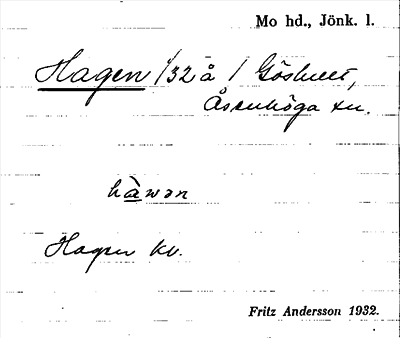 Mo hd., Jönk. l.
Hagen 1/32 å / Göshult,
Åsenhöga sn.
hàwən
Hagen kv.
Fritz Andersson 1932.